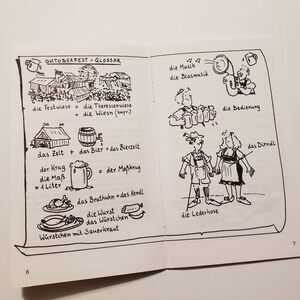 OKTOBERFEST - GLOSSAR
die Festwiese = die Theresienwiese
= die Wiesn (bayr.)
das Zelt + das Bier = das Bierzelt
der Krug
die Maß
= 1 Liter
= der Maßkrug
das Brathuhn = das Hendl
die Wurst
das Würstchen
Würstchen mit Sauerkraut
6
die Musik
die Blasmusik
die Bedienung
das Dirndl
die Lederhose
7